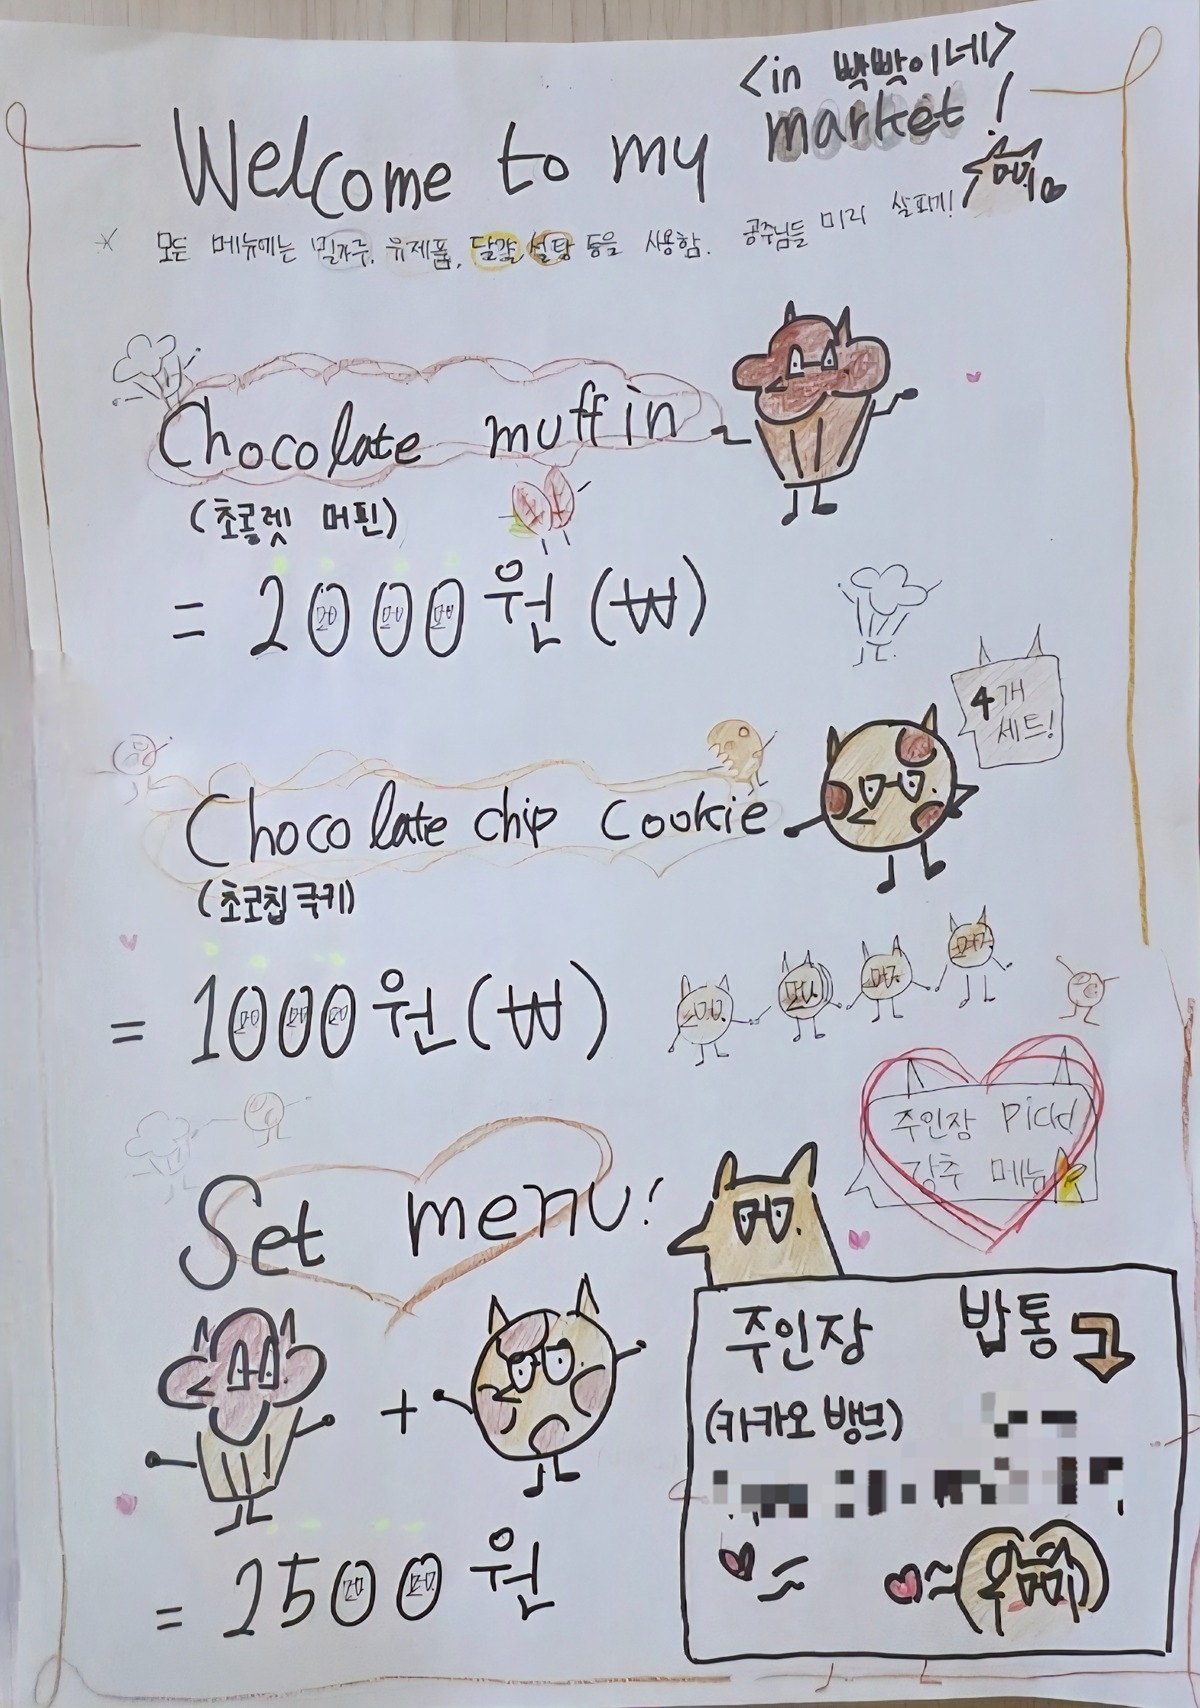 <in 빳빳이네>
Welcome to my market!
* 모든 메뉴에는 밀가루, 유제품, 달걀 설탕 등을 사용함. 공주님들 미리 살피기!
Chocolate muffin
(초콜렛 머핀)
= 2000원 (₩)
4개
세트!
Chocolate chip cookie
(초코칩쿠키)
= 1000원 (₩)
주인장 Pick!
강추 메뉴
Set menu!
+
= 2500원
주인장 밥통
(카카오 뱅크)